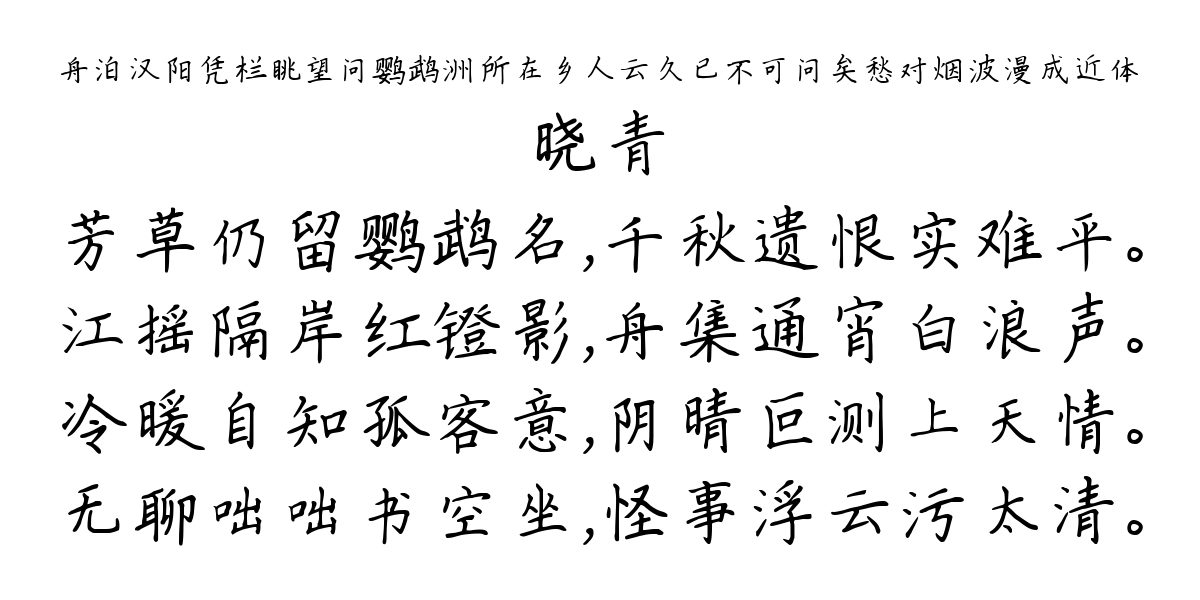 舟泊汉阳凭栏眺望问鹦鹉洲所在乡人云久已不可问矣愁对烟波漫成近体
晓青
芳草仍留鹦鹉名,千秋遗恨实难平。
江摇隔岸红镫影,舟集通宵白浪声。
冷暖自知孤客意,阴晴叵测上天情。
无聊咄咄书空坐,怪事浮云污太清。